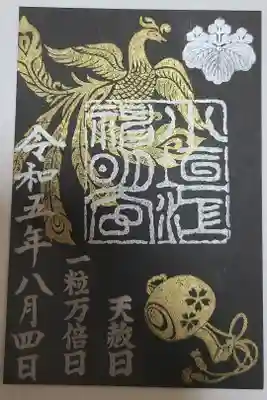 小垣江
神明宮
天赦日
一粒万倍日
令和五年八月四日